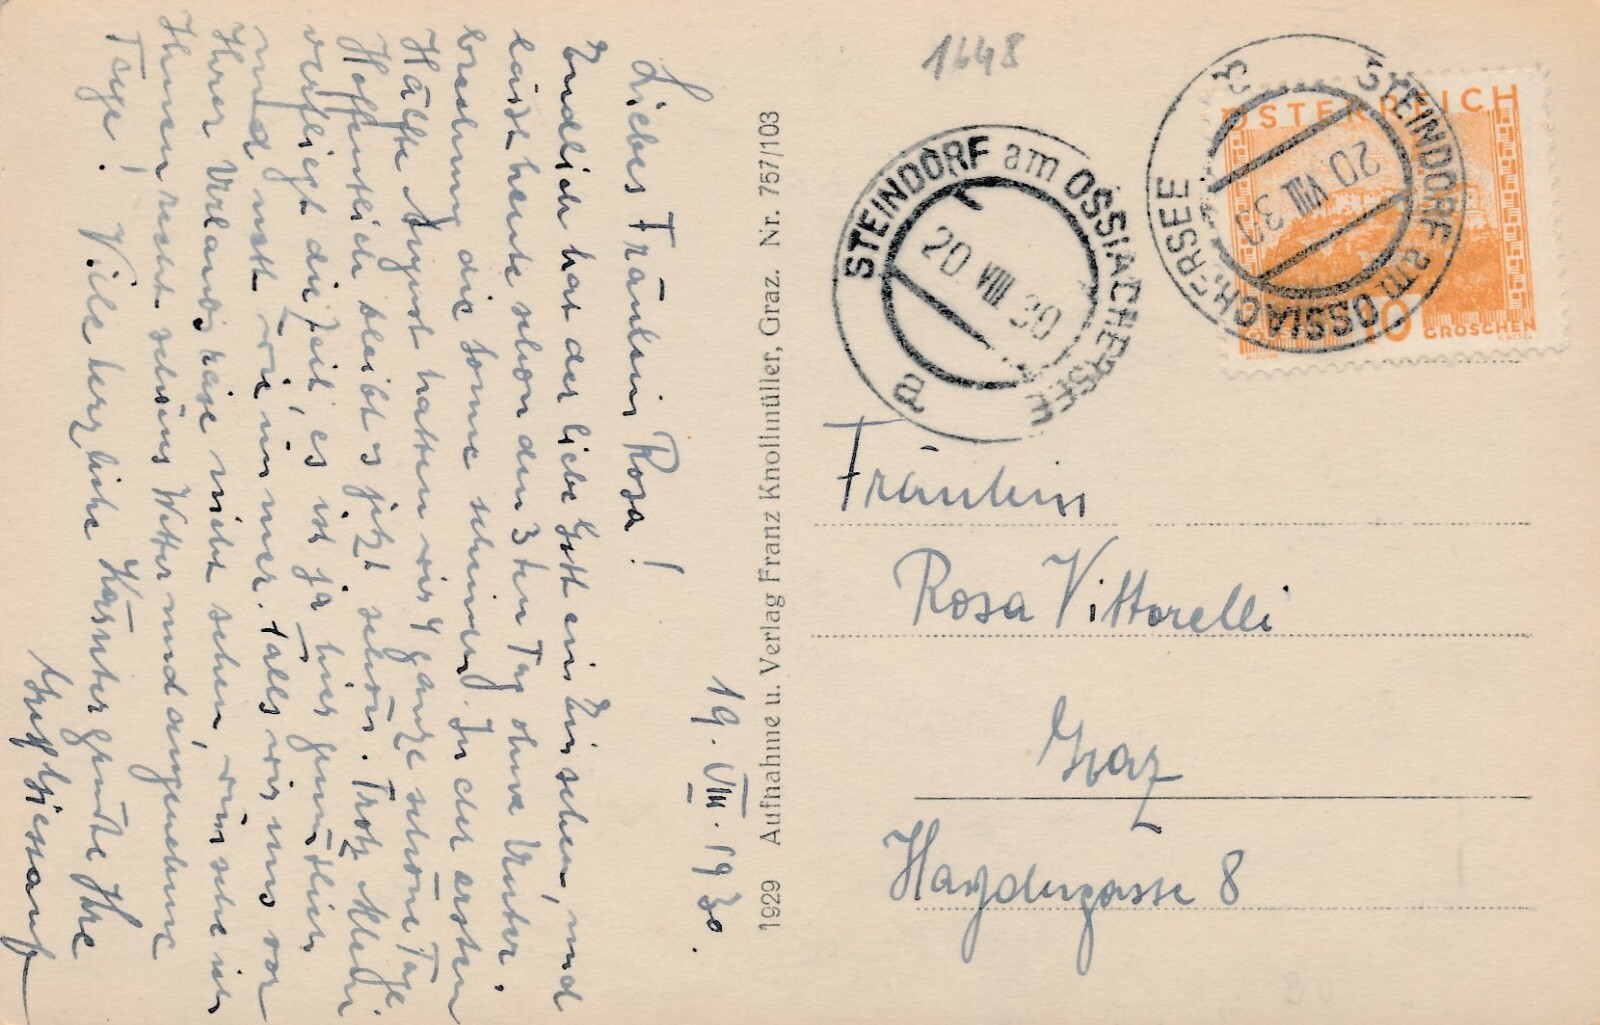 1648
ÖSTERREICH
10 GROSCHEN
STEINDORF am OSSIACHERSEE
20. VIII. 30
a
STEINDORF am OSSIACHERSEE
20. VIII. 30
a
Fräulein
Rosa Vittorelli
Graz
Haydngasse 8
1929 Aufnahme u. Verlag Franz Knollmüller, Graz. Nr. 757/103
19. VIII. 1930.
Liebes Fräulein Rosa!
Endlich hat der liebe Gott ein Einsehen, und
lässt heute schon den 3ten Tag ohne Unter-
brechung die Sonne scheinen. In der ersten
Hälfte August hatten wir 4 ganze schöne Tage.
Hoffentlich bleibt es jetzt schön. Trotz allem
verfliegt die Zeit, es ist ja hier gemütlich
und nett wie immer. Falls wir uns vor
Ihrer Urlaubsreise nicht sehen, wünsche ich
Ihnen recht schönes Wetter und angenehme
Tage! Viele herzliche Kärntergrüße Ihre